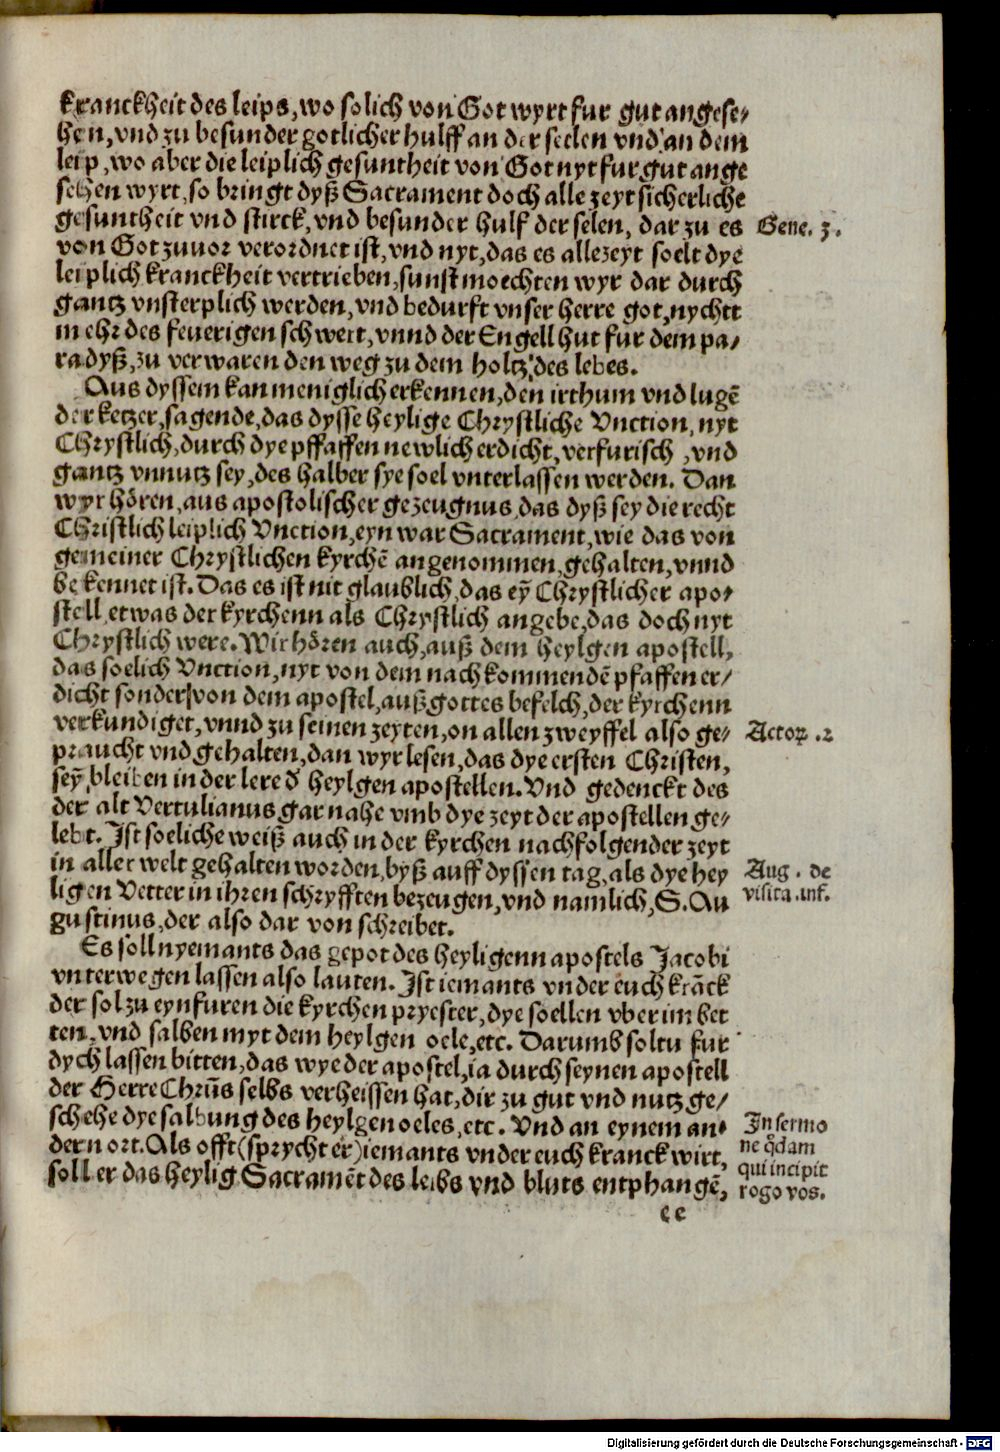 kranckheit des leips, wo solich von Got wyrt fur gut angese⸗
hen, vnd zu besunder gotlicher hulff an der seelen vnd an dem
leip, wo aber die leiplich gesuntheit von Got nyt fur gut ange
sehen wyrt, so bringt dyß Sacrament doch alle zeyt sicherliche
gesuntheit vnd stirck, vnd besunder hulf der selen, dar zu es
Gene. 3.
von Got zuuor verordnet ist, vnd nyt, das es allezeyt soelt dye
leiplich kranckheit vertrieben, sunst moechten wyr dar durch
gantz vnsterplich werden, vnd bedurft vnser herre got, nychtt
mehr des feuerigen schwert, vnnd der Engell hut fur dem pa⸗
radyß, zu verwaren den weg zu dem holtz des lebes.
Aus dyssem kan meniglich erkennen, den irthum vnd lugē
der ketzer, sagende, das dysse heylige Chrystliche Vnction, nyt
Chrystlich, durch dye pffaffen newlich erdicht, verfurisch, vnd
gantz vnnutz sey, des halber sye soel vnterlassen werden. Dan
wyr hören, aus apostolischer gezeugnus, das dyß sey die recht
Christlich leiplich Vnction, eyn war Sacrament, wie das von
gemeiner Chrystlichen kyrchē angenommen, gehalten, vnnd
bekennet ist. Das es ist nit glaublich, das eȳ Chrystlicher apo⸗
stell, etwas der kyrchenn als Chrystlich angebe, das doch nyt
Chrystlich were. Wir hören auch, auß dem heylgen apostell,
das soelich Vnction, nyt von dem nachkommendē pfaffen er⸗
dicht sonder von dem apostel, auß gottes befelch, der kyrchenn
verkundiget, vnnd zu seinen zeyten, on allen zweyffel also ge⸗
Actoꝝ .2
praucht vnd gehalten, dan wyr lesen, das dye ersten Christen,
seȳ bleiben in der lere d̕ heylgen apostellen. Vnd gedenckt des
der alt Vertulianus gar nahe vmb dye zeyt der apostellen ge⸗
lebt. Ist soeliche weiß auch in der kyrchen nachfolgender zeyt
in aller welt gehalten worden, byß auff dyssen tag, als dye hey
Aug. de
ligen Vetter in ihren schryfften bezeugen, vnd namlich, S. Au
visita .inf.
gustinus, der also dar von schreibet.
Es soll nyemants das gepot des heyligenn apostels Jacobi
vnterwegen lassen also lauten. Ist iemants vnder euch krāck
der sol zu eynfuren die kyrchen pryester, dye soellen vber im bet
ten, vnd salben myt dem heylgen oele, etc. Darumb soltu fur
dych lassen bitten, das wye der apostel, ia durch seynen apostell
der Herre Chrūs selbs verheissen hat, dir zu gut vnd nutz ge⸗
schehe dye salbung des heylgen oeles, etc. Vnd an eynem an⸗
In sermo
dern ort. Als offt (sprycht er) iemants vnder euch kranck wirt,
ne q̄dam
qui incipit
soll er das heylig Sacramēt des leibs vnd bluts entphangē,
rogo vos.
c c
Digitalisierung gefördert durch die Deutsche Forschungsgemeinschaft - DFG